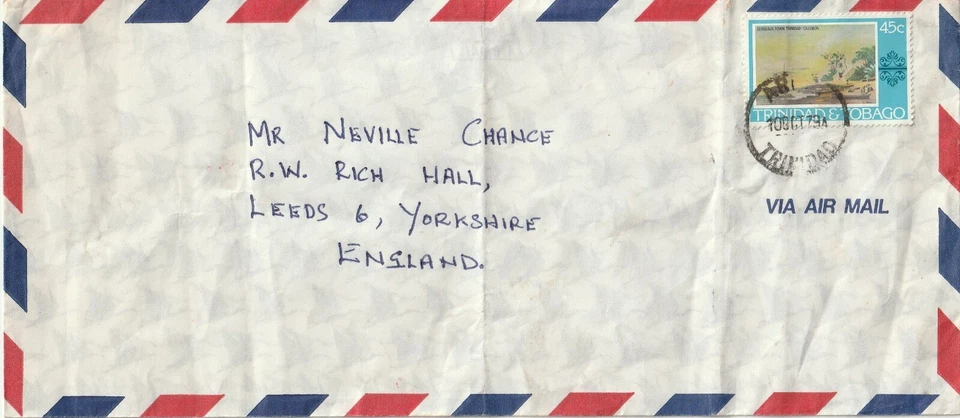 45c
TRINIDAD & TOBAGO
TRINIDAD
VIA AIR MAIL
MR NEVILLE CHANCE
R.W. RICH HALL,
LEEDS 6, YORKSHIRE
ENGLAND.